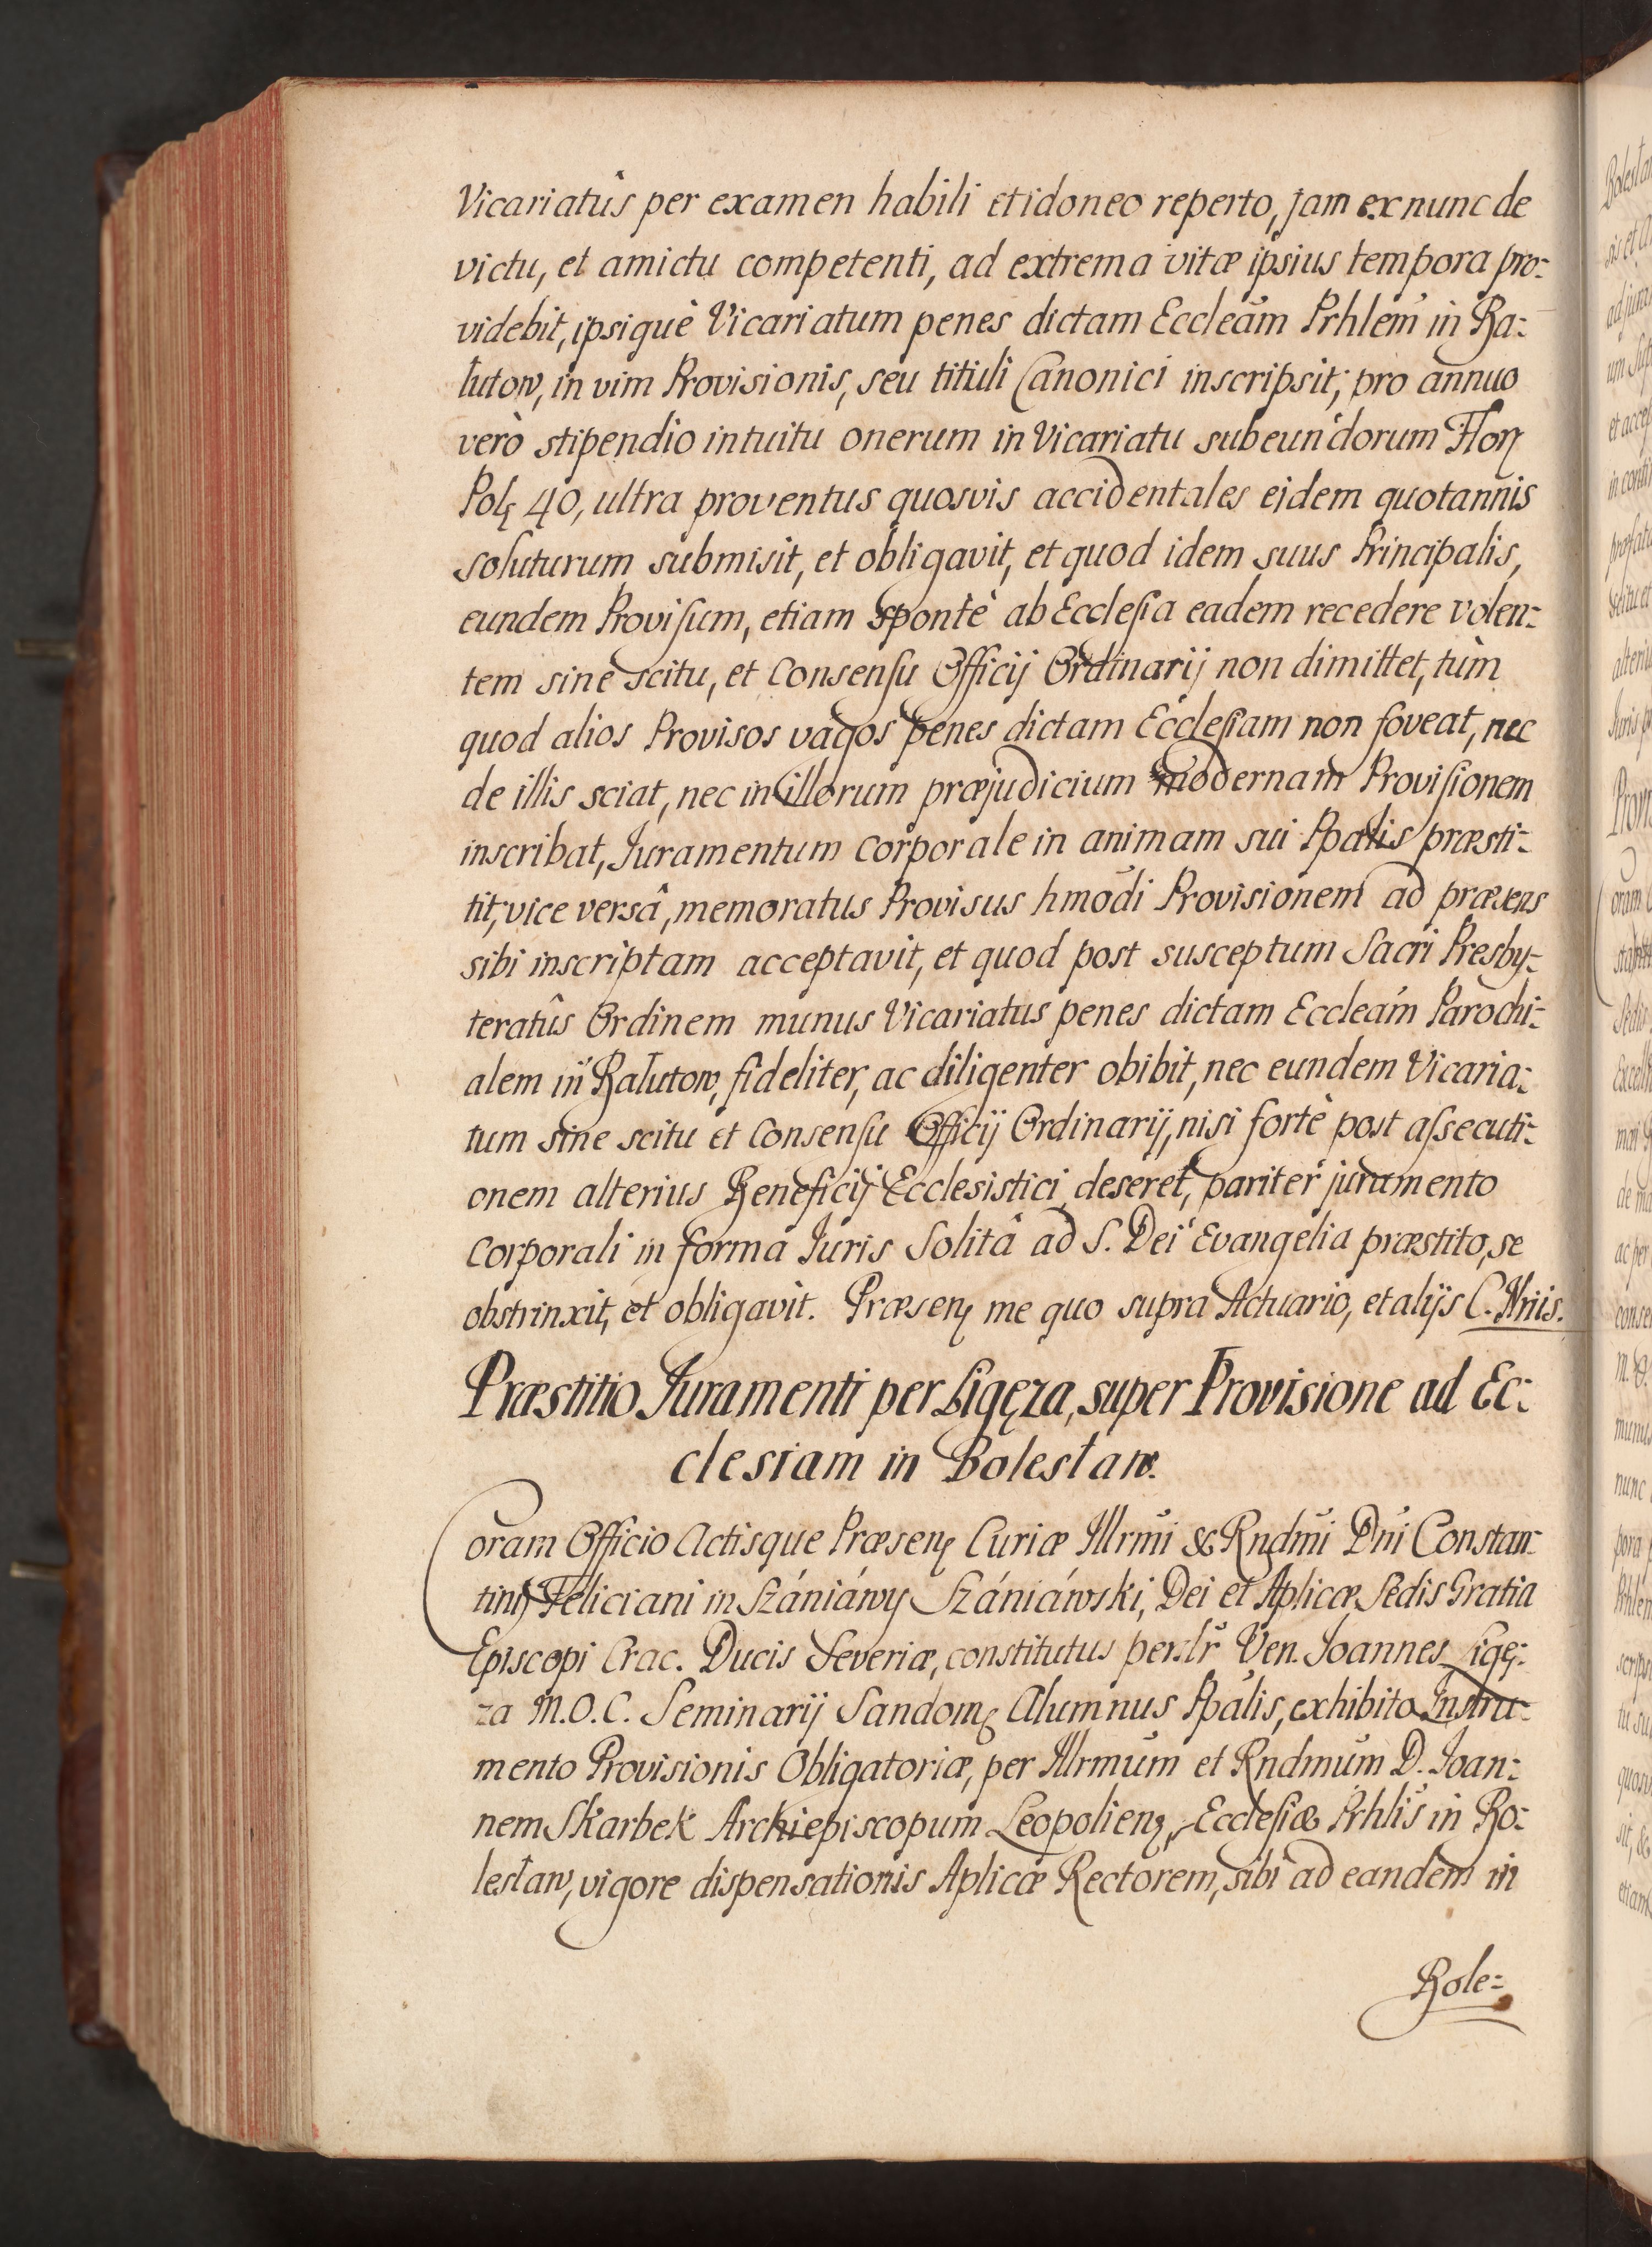 Vicariatûs per examen habili et idoneo reperto, jam ex nunc de
victu, et amictu competenti, ad extrema vitæ ipsius tempora pro:
videbit, ipsiquè Vicariatum penes dictam Eccleam̄ Prhlem̄ in Ba:
łutow, in vim Provisionis, seu tituli Canonici inscripsit; pro annuo
verò stipendio intuitu onerum in Vicariatu subeundorum Flor
Polę 40, ultra proventus quosvis accidentales eidem quotannis
soluturum submisit, et obligavit, et quod idem suus Principalis,
eundem Proviſum, etiam spontè ab Eccleſia eadem recedere volen:
tem sinè scitu, et Consenſu Officij Ordinarij non dimittet, tùm
quod alios Provisos vagos penes dictam Eccleſiam non foveat, nec
de illis sciat, nec in illorum præjudicium modernam Proviſionem
inscribat, Juramentum corporale in animam sui Ppalis præsti:
tit; vice versâ, memoratus Provisus hmodi Provisionem ad præsens
sibi inscriptam acceptavit, et quod post susceptum Sacri Presby:
teratûs Ordinem munus Vicariatus penes dictam Eccleam̄ Parochi:
alem in Bałutow, fideliter, ac diligenter obibit, nec eundem Vicaria:
tum sine scitu et Consenſu Officij Ordinarij, nisi fortè post aſsecuti:
onem alterius Beneficij Ecclesistici deseret, pariter juramento
corporali in forma Juris Solitâ ad S. Dei Evangelia præstito, se
obstrinxit, et obligavit. Præsenę me quo supra Actuario, et alijs C. Nriis.
Præstitio Juramenti per Ligęza, super Provisione ad Ec:
clesiam in Bolesław.
Coram Officio Actisque Præsenę Curiæ Illrmi & Rndmi Dni Constan:
tini Feliciani in Szániáwy Szániáwski, Dei et Aplicæ Sedis Gratia
Episcopi Crac. Ducis Severiæ, constitutus persłr Ven. Joannes Ligę:
za M.O.C. Seminarij Sandomę Alumnus Ppalis, exhibito Instru:
mento Provisionis Obligatoriæ, per Illrmum et Rndmum D. Joan:
nem Skarbek Archiepiscopum Leopolienę, Eccleſiæ Prhlis in Bo:
lesław, vigore dispensationis Aplicæ Rectorem, sibi ad eandem in
Bole: